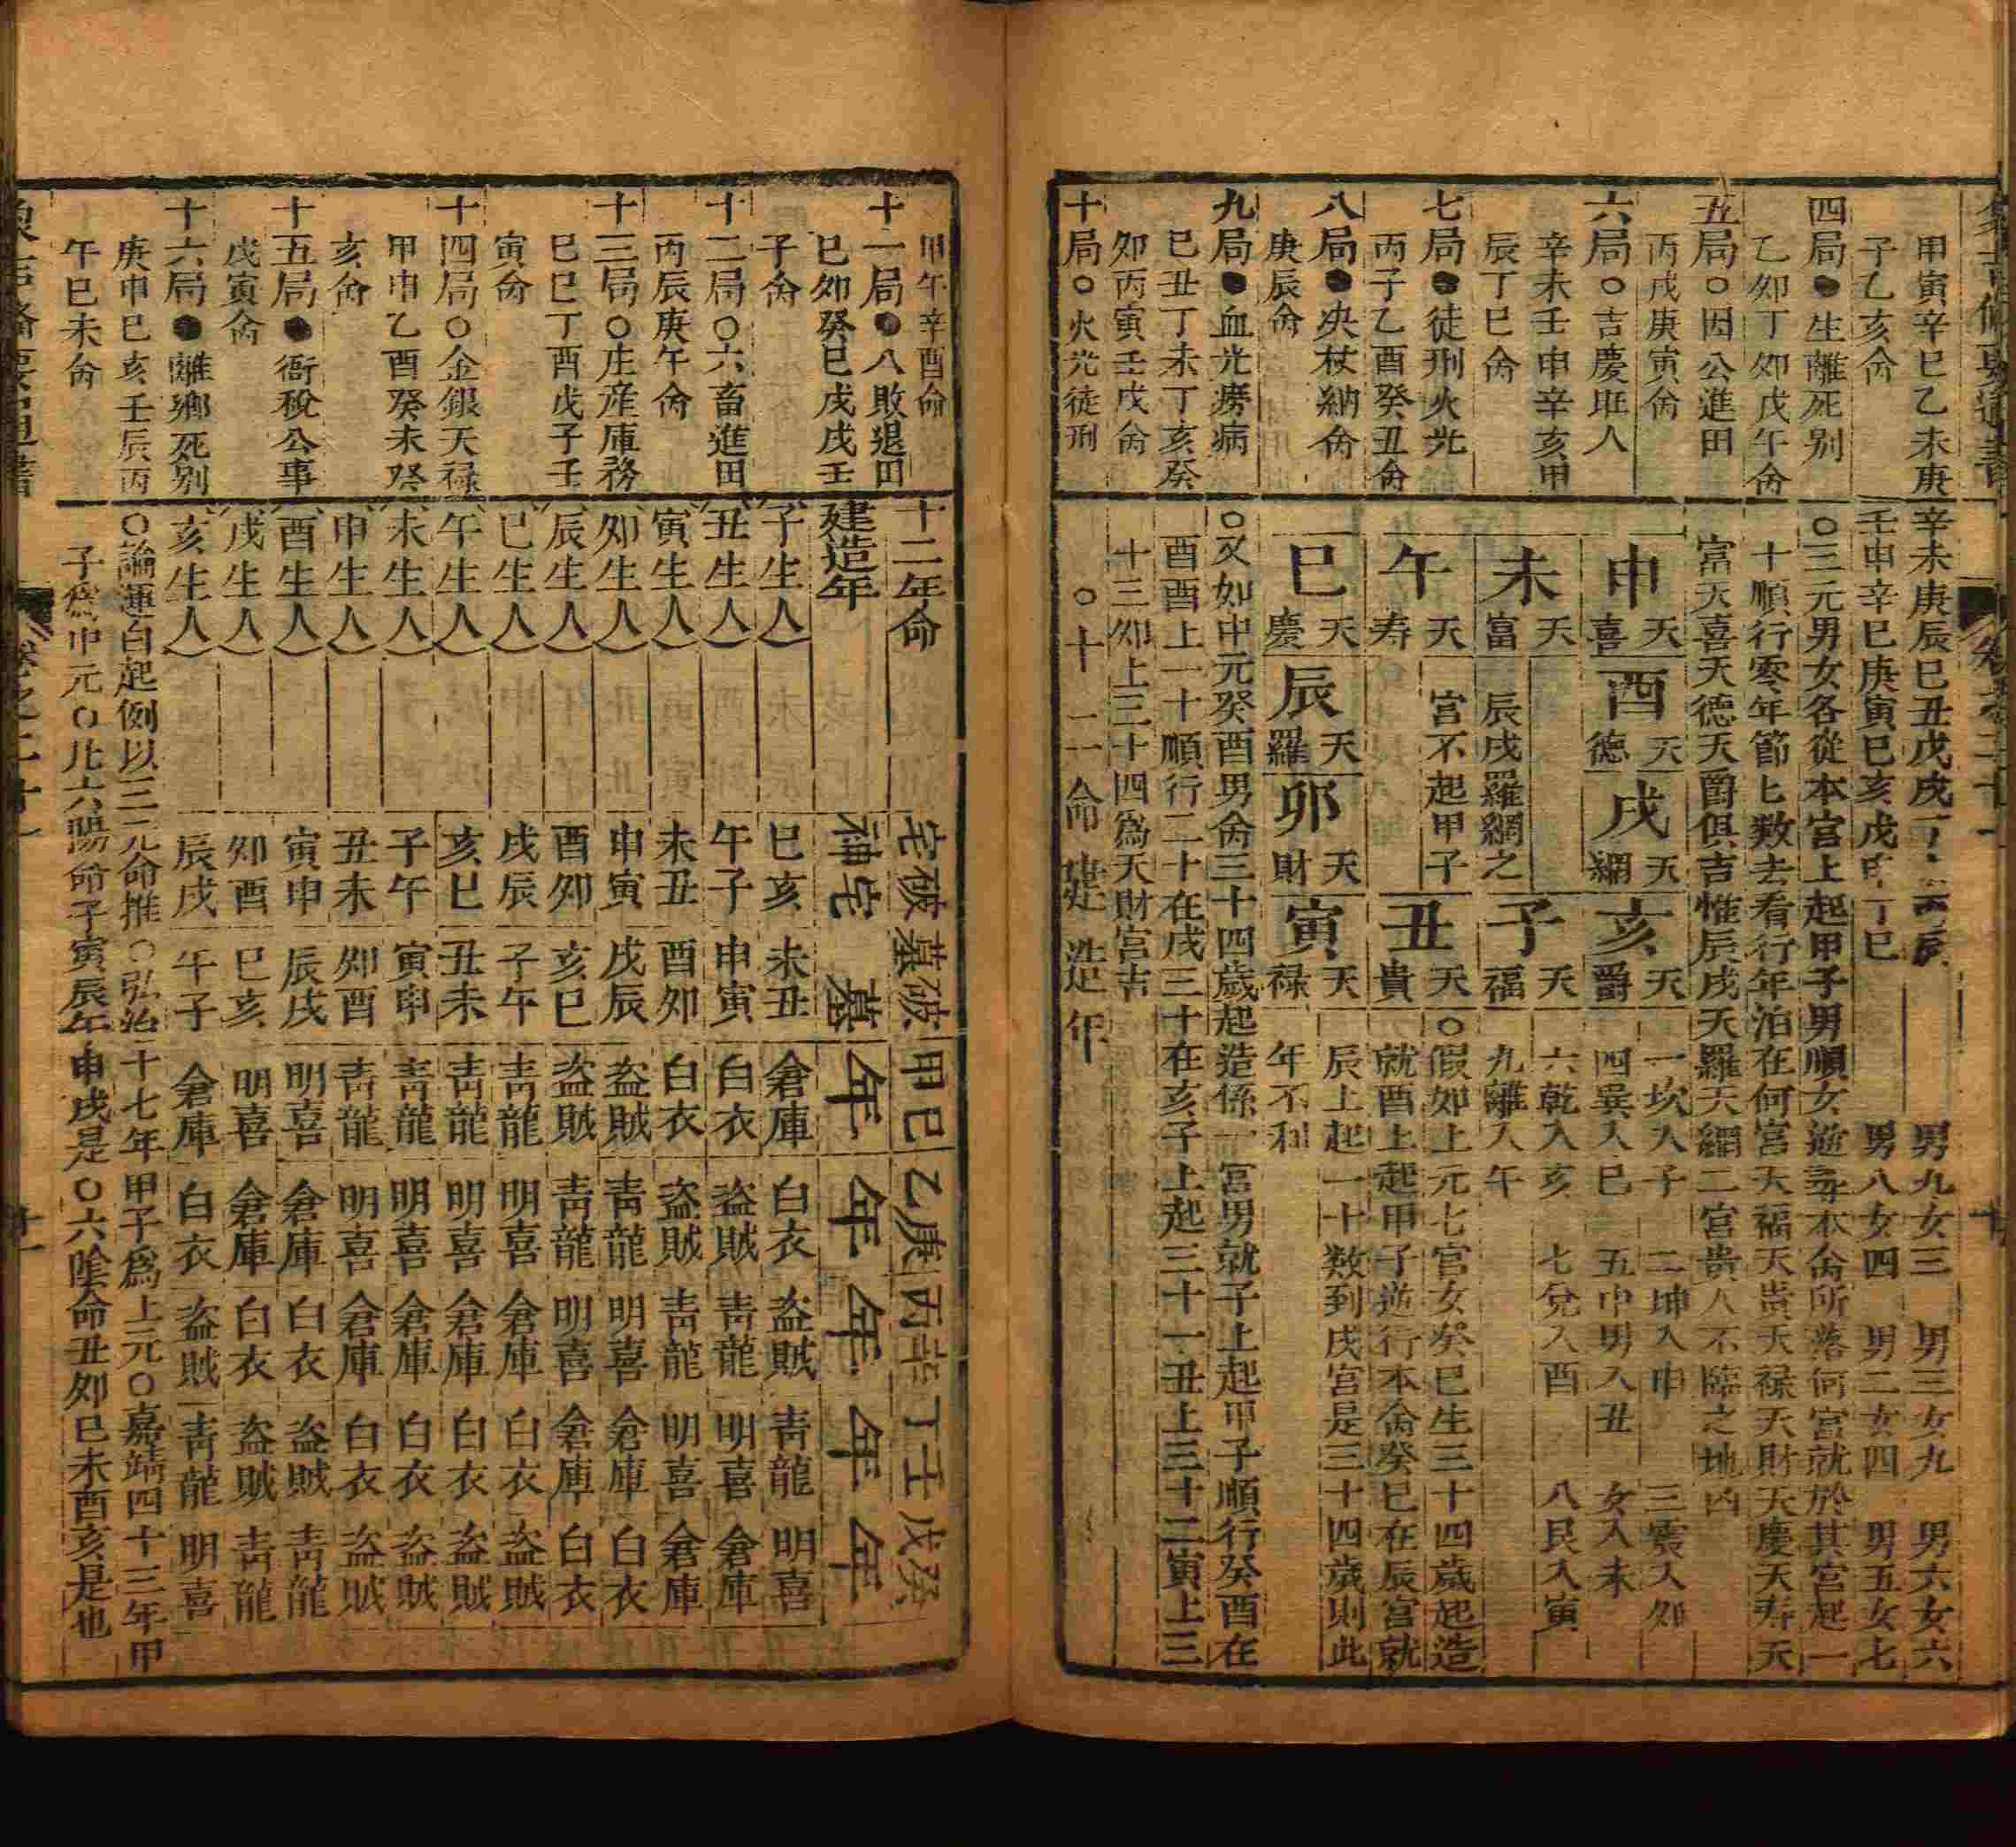 甲寅辛巳乙未庚
子乙亥命
四局●生離死别
乙卯丁卯戊午命
五局○因公進田
丙戌庚寅命
六局○吉慶旺人
辛未壬申辛亥甲
辰丁巳命
七局●徒刑火光
丙子乙酉癸丑命
八局●央杖納命
庚辰命
九局●血光癆病
巳丑丁未丁亥癸
卯丙寅壬戌命
十局○火光徒刑
辛未庚辰巳丑戊戌
男九女三 男三女九 男六女六
壬申辛巳庚寅巳亥戊
丁巳
男八女四 男二女四 男五女七
○三元男女各從本宮上起甲子男順女逆尋本命所落何宮就於其宮起一
十順行零年節上数去看行年泊在何宮天福天貴天禄天財天慶天寿天
富天喜天德天爵俱吉惟辰戌天羅天網二宮貴人不臨之地凶
申 天喜
未 天富
午 天寿
巳 天慶
酉 天德
辰 天羅
戌 天網
卯 天財
辰戌羅網之
宮不起甲子
亥 天爵
子 天福
丑 天貴
寅 天禄
一坎入子 二坤入申 三震入卯
四巽入巳 五中男入丑 女入未
六乾入亥 七兌入酉 八艮入寅
九離入午
○假如上元七宮女癸巳生三十四歲起造
就酉上起甲子逆行本命癸巳在辰宮就
辰上起一十数到戌宮是三十四歲則此
年不利
○又如中元癸酉男命三十四歲起造係一宮男就子上起甲子順行癸酉在
酉酉上一十順行二十在戌三十在亥子上起三十一丑上三十二寅上三
十三卯上三十四爲天財宮吉
○十二命建造年
甲午辛酉命
十一局●八敗退田
巳卯癸巳戊戌壬
子命
十二局○六畜進田
丙辰庚午命
十三局○庄産庫務
巳巳丁酉戊子壬
寅命
十四局○金銀天禄
甲申乙酉癸未癸
亥命
十五局●衙税公事
戊寅命
十六局●離鄉死别
庚申巳亥壬辰丙
午巳未命
十二年命 宅破 墓破 甲巳 乙庚 丙辛 丁壬 戊癸
建造年 神宅 墓 年 年 年 年 年
子生人 巳亥 未丑 倉庫 白衣 盗賊 青龍 明喜
丑生人 午子 申寅 白衣 盗賊 青龍 明喜 倉庫
寅生人 未丑 酉卯 白衣 盗賊 青龍 明喜 倉庫
卯生人 申寅 戌辰 盗賊 青龍 明喜 倉庫 白衣
辰生人 酉卯 亥巳 盗賊 青龍 明喜 倉庫 白衣
巳生人 戌辰 子午 青龍 明喜 倉庫 白衣 盗賊
午生人 亥巳 丑未 青龍 明喜 倉庫 白衣 盗賊
未生人 子午 寅申 青龍 明喜 倉庫 白衣 盗賊
申生人 丑未 卯酉 青龍 明喜 倉庫 白衣 盗賊
酉生人 寅申 辰戌 明喜 倉庫 白衣 盗賊 青龍
戌生人 卯酉 巳亥 明喜 倉庫 白衣 盗賊 青龍
亥生人 辰戌 午子 倉庫 白衣 盗賊 青龍 明喜
○論運白起例以三元命推○弘治十七年甲子爲上元○嘉靖四十三年甲
子爲中元○此六陽命子寅辰午申戌是○六陰命丑卯巳未酉亥是也